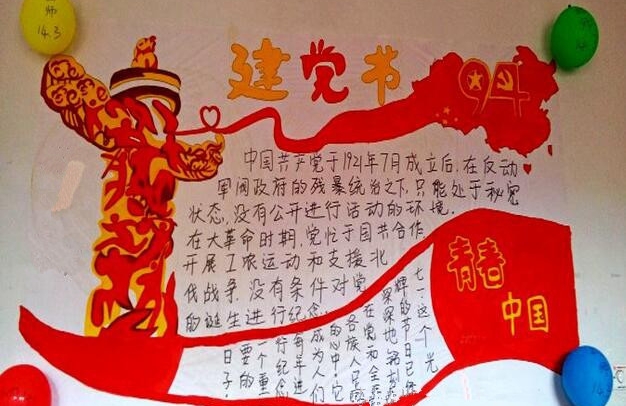 师
14.3
建党节
94
中国共产党于1921年7月成立后,在反动
军阀政府的残暴统治之下,只能处于秘密
状态,没有公开进行活动的环境.
在大革命时期,党忙于国共合作
开展工农运动和支援北
伐战争,没有条件对党
的诞生进行纪念.
七一,这个光
辉的节日已经
深深地铭刻
在党和全
各族人民
的心中,它
成为人们
年进
行纪念
的一个重
要的
日子.
青春
中国